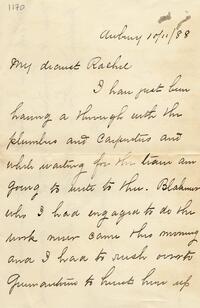 1170
Asbury 10/11/88
My dearest Rachel
I have just been
having a through with the
plumber and Carpenter and
while waiting for the train am
going to write to thee.
who I had engaged to do the
work never came this morning
and I had to rush over to
to hunt him up